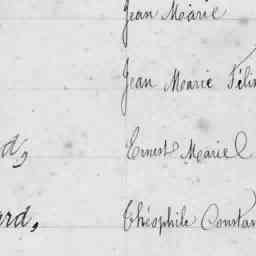 Jean Marie
Jean Marie Féli
d, Ernest Marie
ard, Théophile Constan